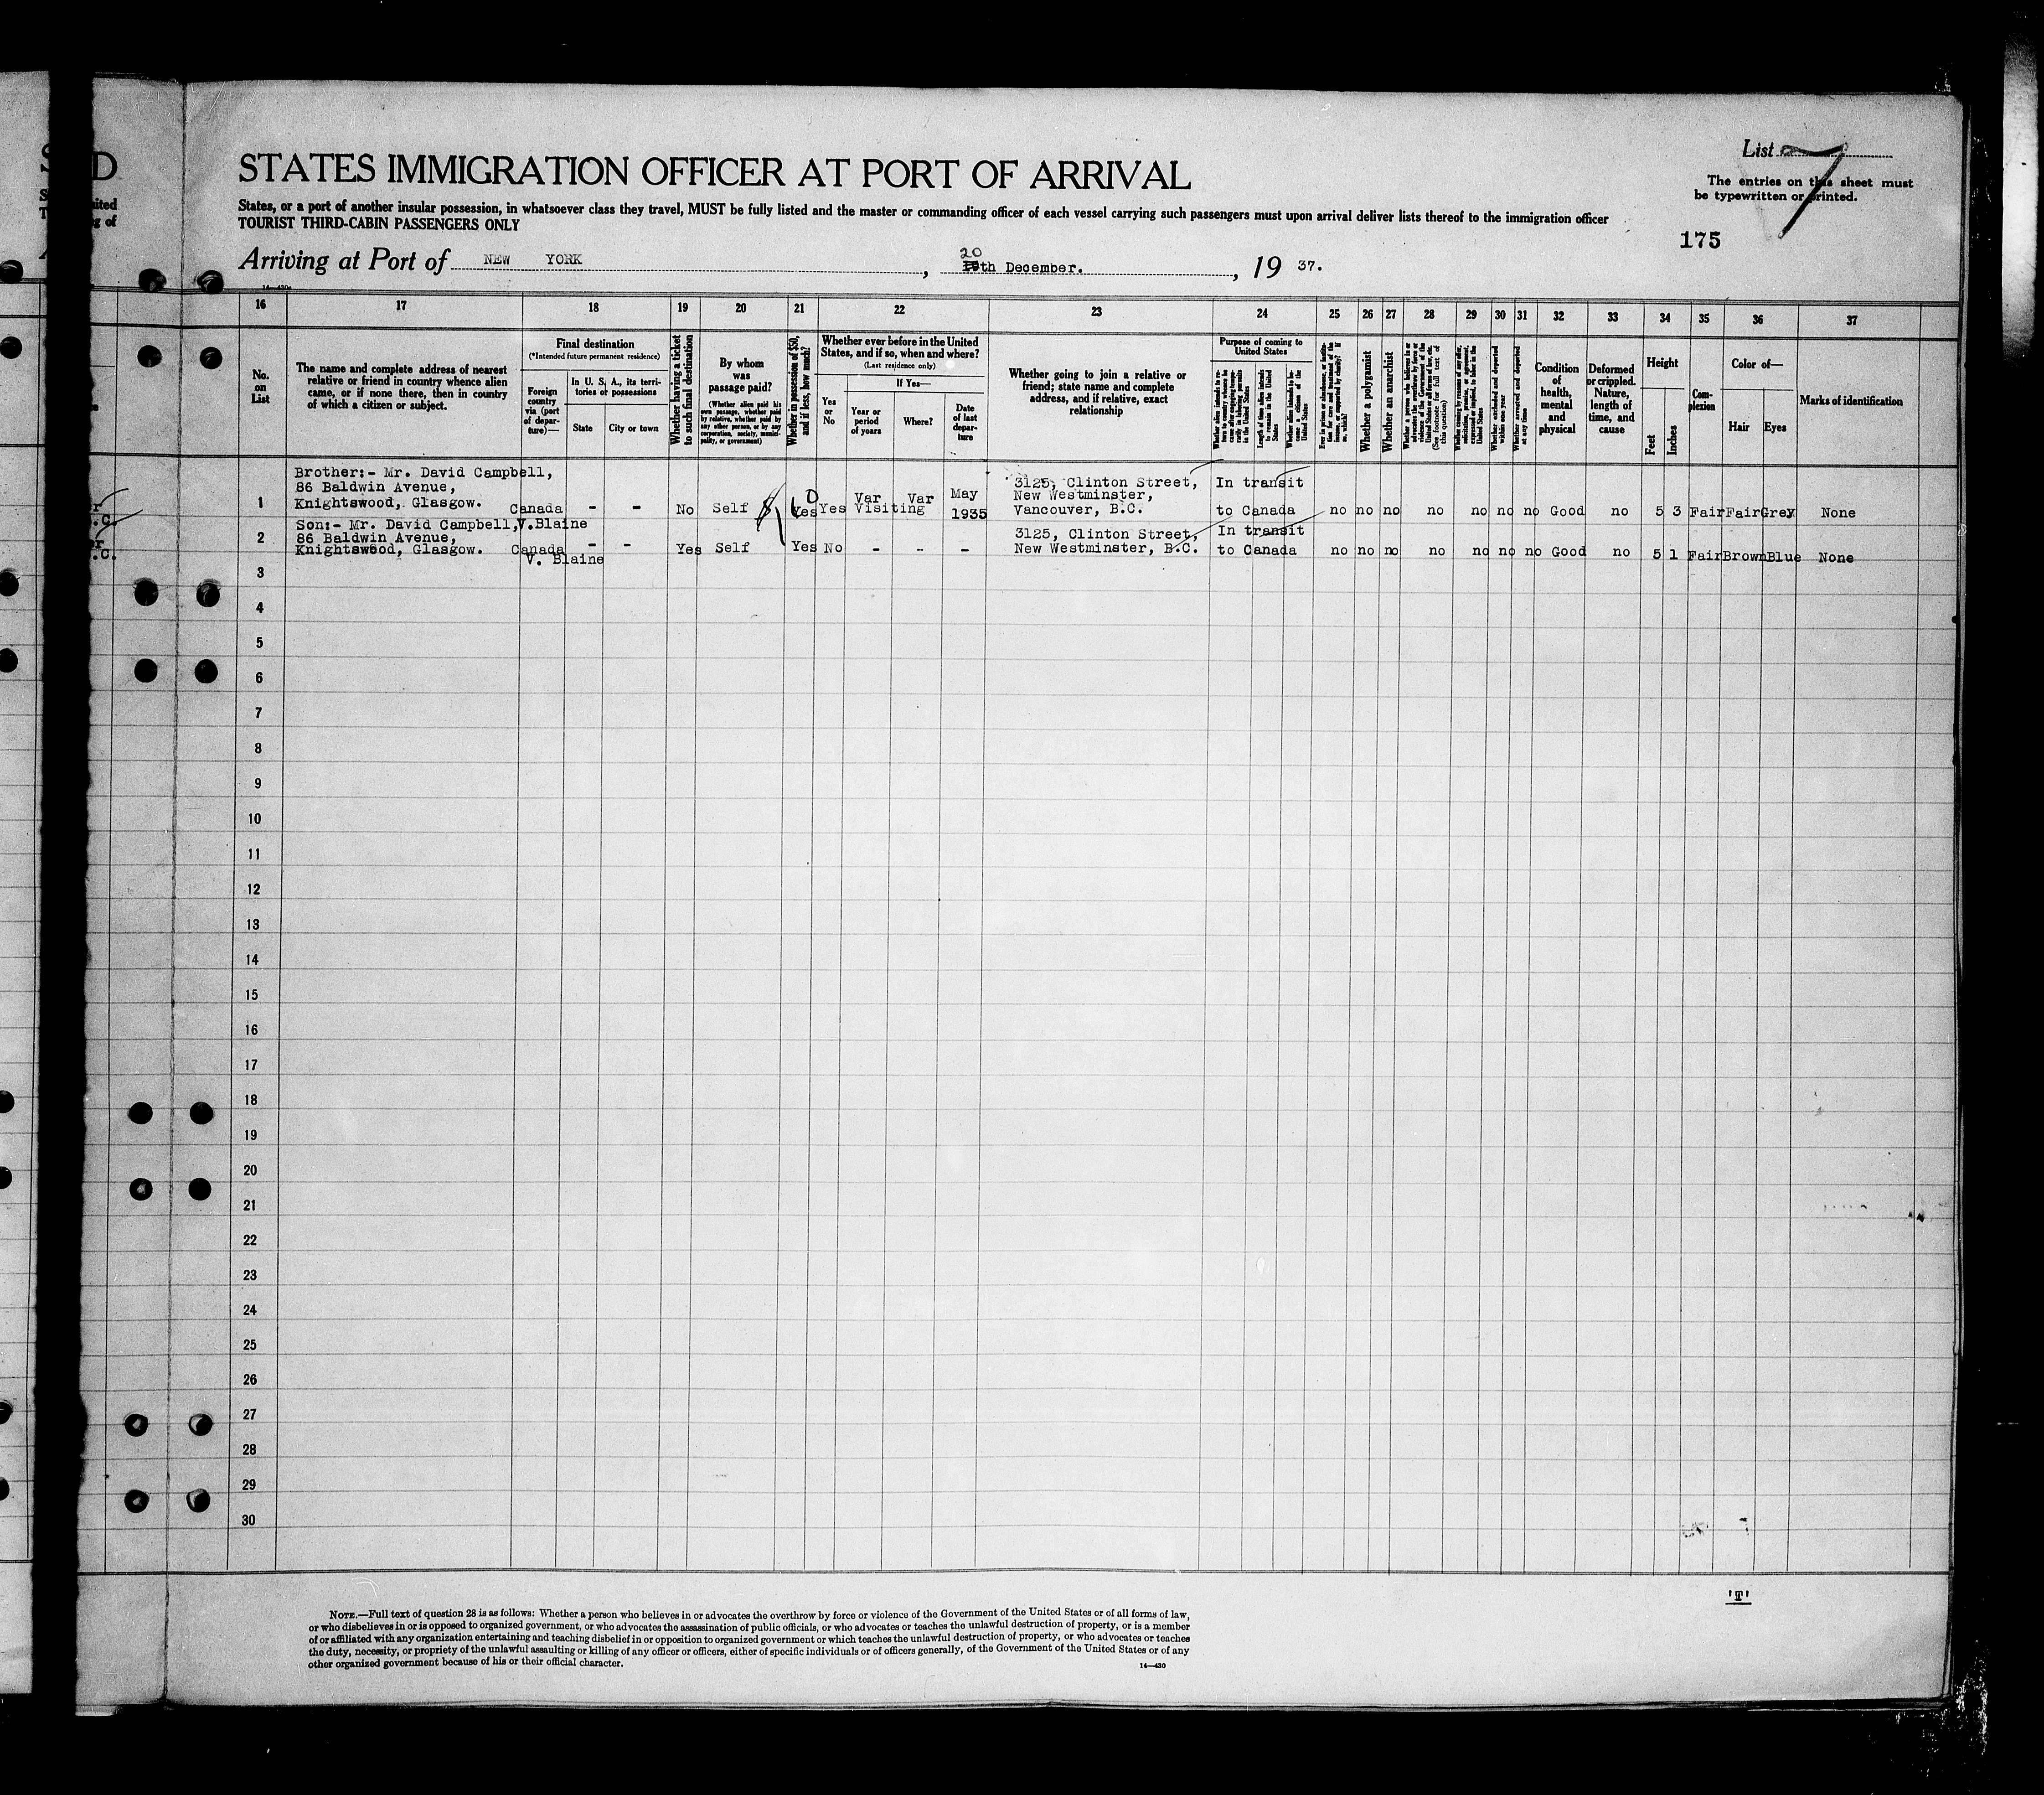 STATES IMMIGRATION OFFICER AT PORT OF ARRIVAL
List 7
The entries on this sheet must
be typewritten or printed.
States, or a port of another insular possession, in whatsoever class they travel, MUST be fully listed and the master or commanding officer of each vessel carrying such passengers must upon arrival deliver lists thereof to the immigration officer
TOURIST THIRD-CABIN PASSENGERS ONLY
175
Arriving at Port of NEW YORK, 20th December., 19 37.
16 17 18 19 20 21 22 23 24 25 26 27 28 29 30 31 32 33 34 35 36 37
No. on List
The name and complete address of nearest
relative or friend in country whence alien
came, or if none there, then in country
of which a citizen or subject.
Final destination
(*Intended future permanent residence)
Foreign country via (port of departure)—
In U. S. A., its territories or possessions
State
City or town
Whether having a ticket to such final destination
By whom was passage paid?
(Whether alien paid his own passage, whether paid by relative, whether paid by any other person, or by any corporation, society, municipality, or government)
Whether in possession of $50, and if less, how much?
Whether ever before in the United
States, and if so, when and where?
(Last residence only)
Yes or No
If Yes—
Year or period of years
Where?
Date of last departure
Whether going to join a relative or
friend; state name and complete
address, and if relative, exact
relationship
Purpose of coming to United States
Length of time alien intends to remain in the United States
Whether alien intends to become a citizen of the United States
Whether a polygamist
Whether an anarchist
(See footnote for full text of this question)
Whether arrested and deported at any time
Condition of health, mental and physical
Deformed or crippled. Nature, length of time, and cause
Height
Feet
Inches
Complexion
Color of—
Hair
Eyes
Marks of identification
1
Brother:- Mr. David Campbell,
86 Baldwin Avenue,
Knightswood, Glasgow.
Canada
V.Blaine
- - No Self Yes Yes Var Var Visiting May 1935
3125, Clinton Street,
New Westminster,
Vancouver, B.C.
In transit
to Canada
no no no no no no no Good no 5 3 Fair Fair Grey None
2
Son:- Mr. David Campbell,
86 Baldwin Avenue,
Knightswood, Glasgow.
Canada
V. Blaine
- - Yes Self Yes No - - -
3125, Clinton Street,
New Westminster, B.C.
In transit
to Canada
no no no no no no no Good no 5 1 Fair Brown Blue None
3
4
5
6
7
8
9
10
11
12
13
14
15
16
17
18
19
20
21
22
23
24
25
26
27
28
29
30
'T'
NOTE.—Full text of question 28 is as follows: Whether a person who believes in or advocates the overthrow by force or violence of the Government of the United States or of all forms of law,
or who disbelieves in or is opposed to organized government, or who advocates the assassination of public officials, or who advocates or teaches the unlawful destruction of property, or is a member
of or affiliated with any organization entertaining and teaching disbelief in or opposition to organized government or which teaches the unlawful destruction of property, or who advocates or teaches
the duty, necessity, or propriety of the unlawful assaulting or killing of any officer or officers, either of specific individuals or of officers generally, of the Government of the United States or of any
other organized government because of his or their official character.
14—430